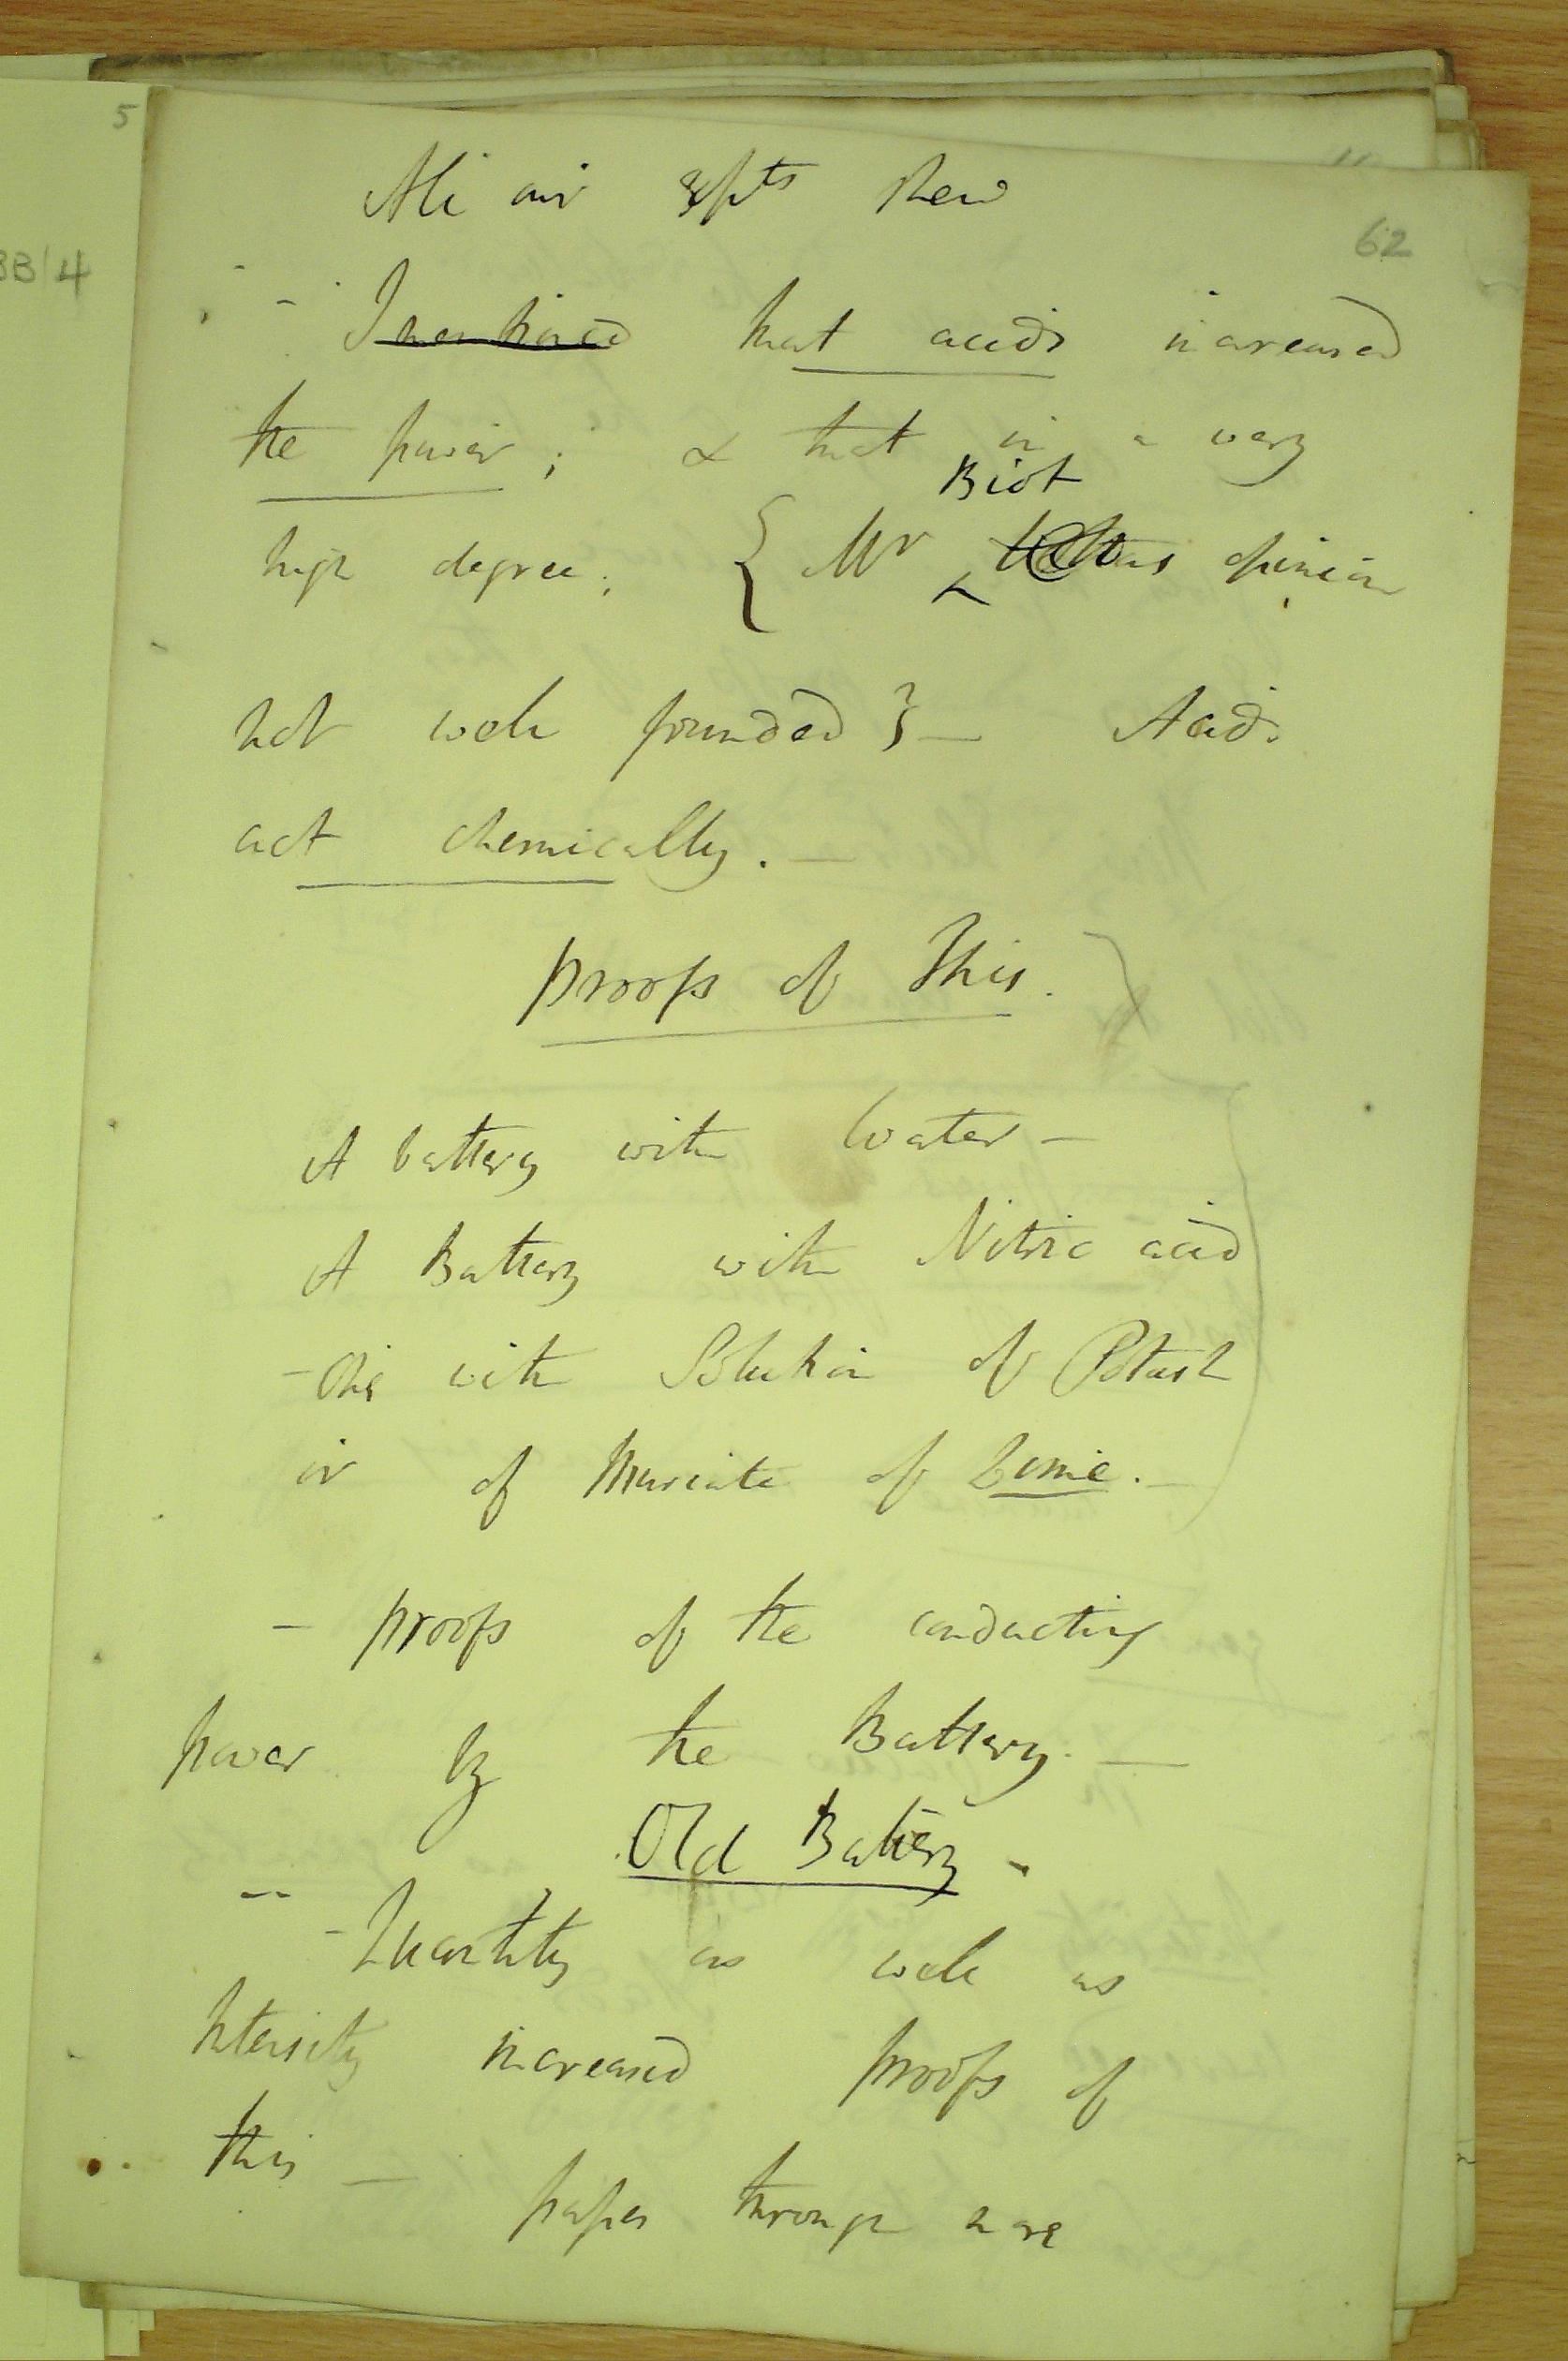 62
All our expts shew
- I mentioned that acids increased
the power; & that in a very
Biot
high degree; { Mr opinion
not well founded } — Acids
act chemically. —
proofs of This.
A battery with Water —
A Battery with Nitric acid
- One with Solution of Potash
or of Muriate of Lime. —
- proofs of the conducting
power by the Battery. —
Old Battery -
- Quantity as well as
Intensity increased proofs of
this — paper through
5
BB/4